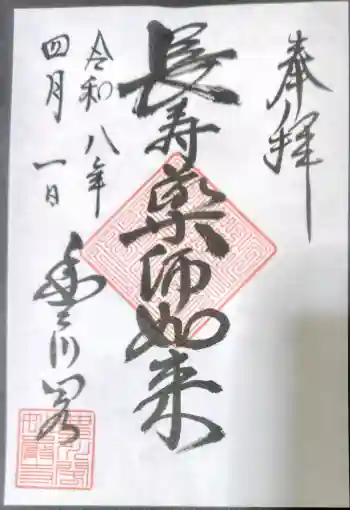 奉拝
長寿薬師如来
令和八年
四月一日